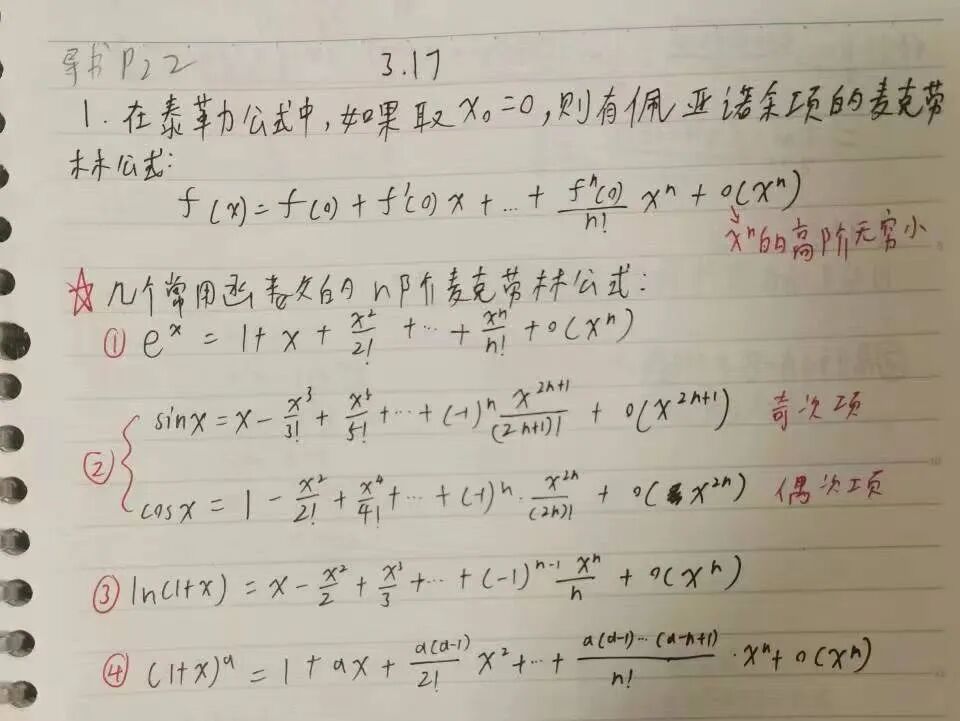 导书 P22 3.17
1. 在泰勒公式中,如果取 x₀=0,则有佩亚诺余项的麦克劳
林公式:
f(x) = f(0) + f'(0)x + … + fⁿ(0)/n! xⁿ + o(xⁿ)
xⁿ的高阶无穷小
☆ 几个常用函数的 n阶麦克劳林公式:
① eˣ = 1 + x + x²/2! + … + xⁿ/n! + o(xⁿ)
② sinx = x - x³/3! + x⁵/5! + … + (-1)ⁿ x²ⁿ⁺¹/(2n+1)! + o(x²ⁿ⁺¹) 奇次项
cosx = 1 - x²/2! + x⁴/4! + … + (-1)ⁿ · x²ⁿ/(2n)! + o(x²ⁿ) 偶次项
③ ln(1+x) = x - x²/2 + x³/3 + … + (-1)ⁿ⁻¹ xⁿ/n + o(xⁿ)
④ (1+x)ᵃ = 1 + ax + a(a-1)/2! x² + … + a(a-1)…(a-n+1)/n! · xⁿ + o(xⁿ)